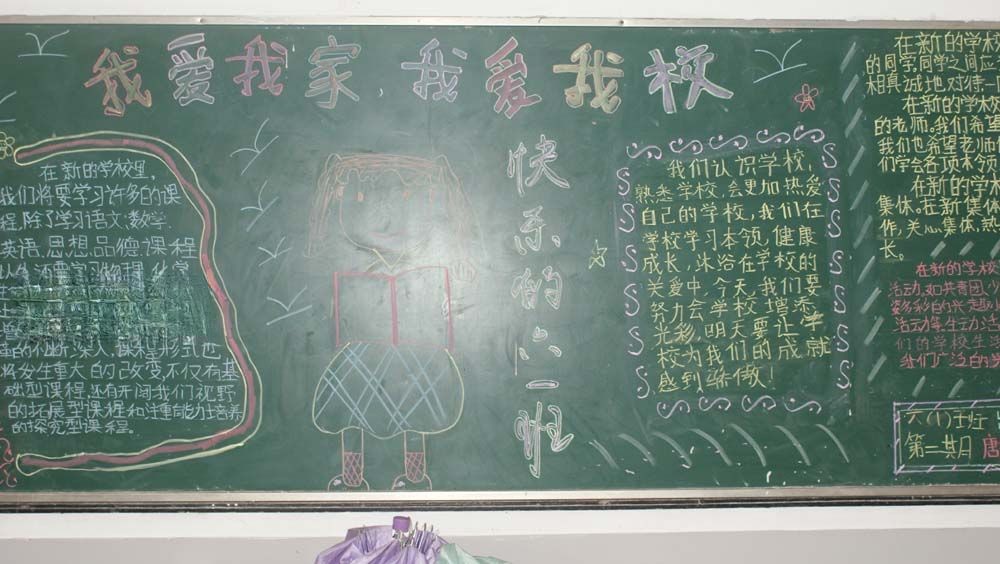 我爱我家，我爱我校
在新的学校里，
我们将要学习许多的课
程，除了学习语文、数学、
英语、思想品德课程
的不断深入，课本型形式也
将发生重大的改变，不仅有基
础型课程，还有开阔我们视野
的拓展型课程和注重能力培养
的探究型课程。
快乐的六一班
我们认识学校，
熟悉学校，会更加热爱
自己的学校，我们在
学校学习本领，健康
成长，沐浴在学校的
关爱中，今天，我们要
努力会学校增添
光彩，明天要让学
校为我们的成就
感到骄傲！
在新的学校
的同学，同学之间应
相真诚地对待
在新的学校
的老师。我们希望
我们也希望老师
们学会各项本领
在新的学
集体。在新集体
作，关心集体，热
长。
在新的学校
活动，如共青团、少
姿多彩的兴趣
活动等。生动活
们的学校生活
我们广泛的
六（1）班
第二期 唐